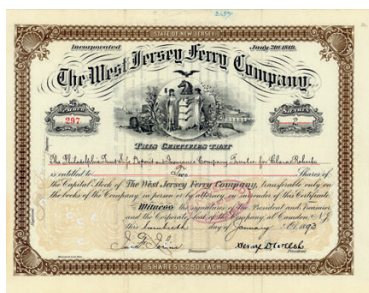 STATE OF NEW JERSEY
Incorporated
The West Jersey Ferry Company.
Number
297
Shares
2
THIS CERTIFIES THAT
The Philadelphia Trust Safe Deposit and Insurance Company Trustee for
is entitled to Two Shares of
the Capital Stock of The West Jersey Ferry Company, transferable only on
the books of the Company in person or by attorney on surrender of this Certificate
Witness the signatures of the President and Treasurer
and the Corporate Seal of the Company, at Camden N.J.
this day of January A.D. 1893
President
SHARES $ EACH